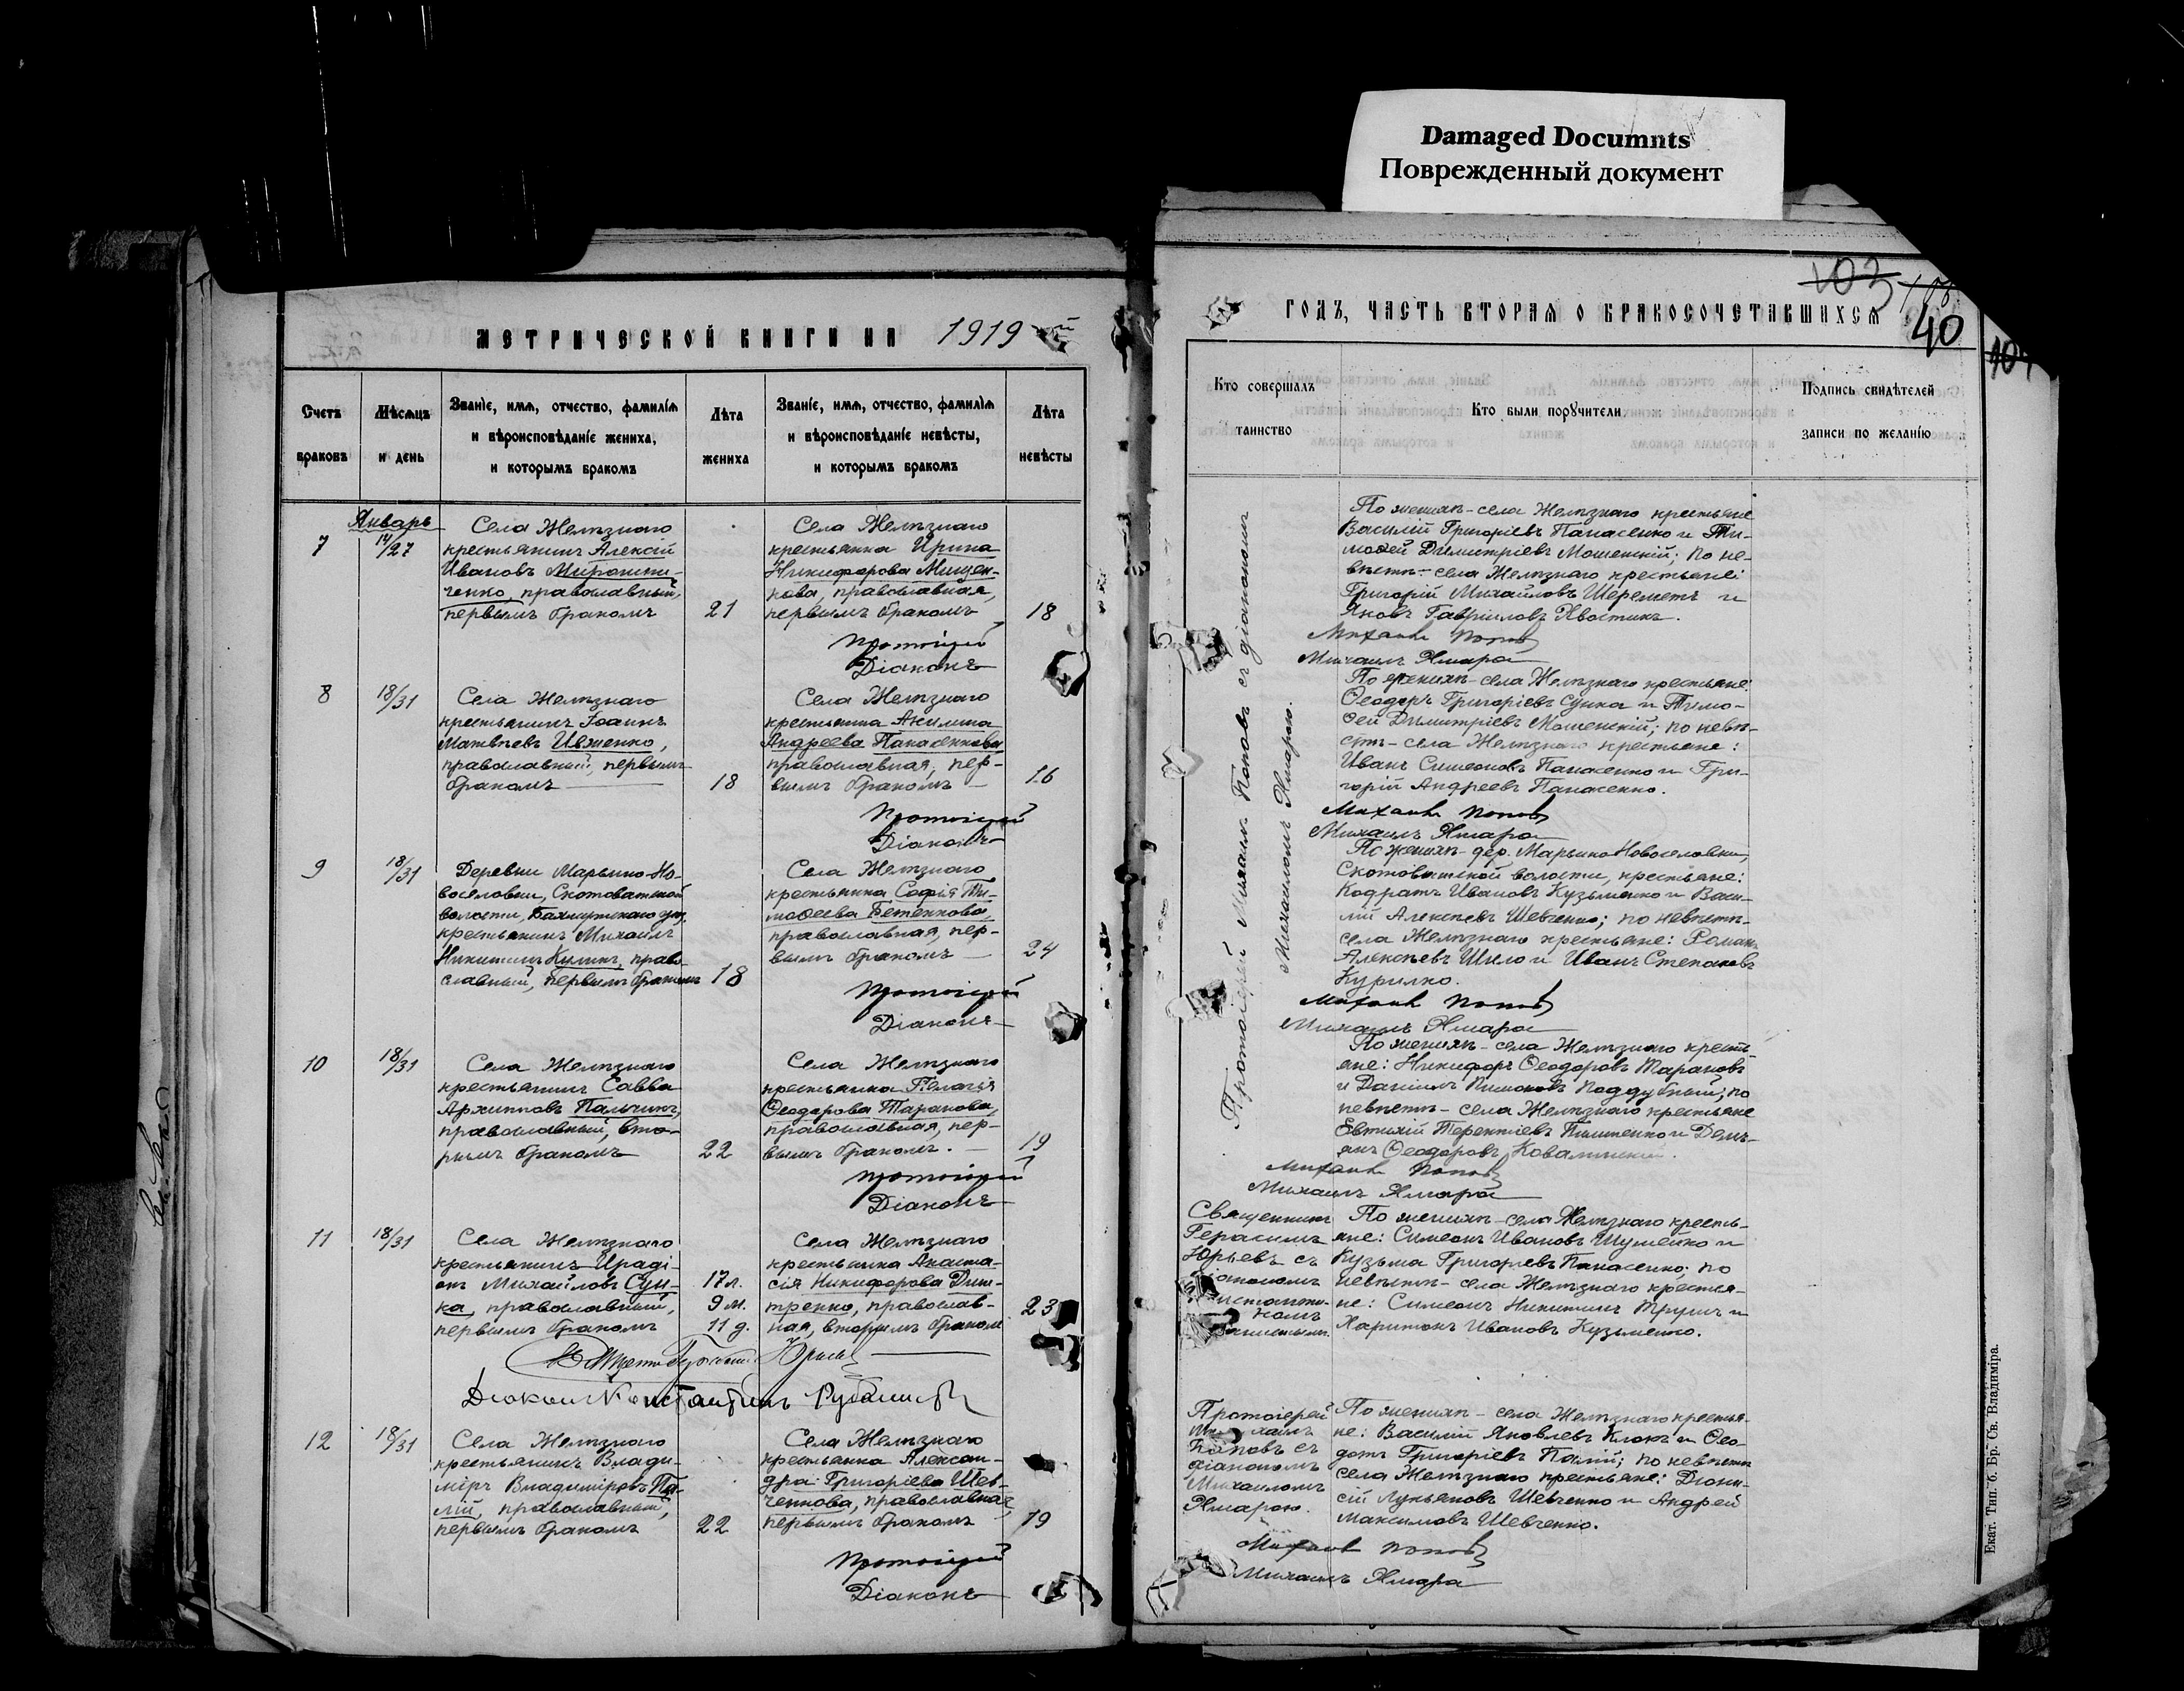 Damaged Documnts
Поврежденный документ
МЕТРИЧЕСКОЙ КНИГИ НА 1919 й
Счетъ браковъ
Мѣсяцъ и день
Званіе, имя, отчество, фамилія
и вѣроисповѣданіе жениха,
и которымъ бракомъ
Лѣта жениха
Званіе, имя, отчество, фамилія
и вѣроисповѣданіе невѣсты,
и которымъ бракомъ
Лѣта невѣсты
Январь
7
14/27
Села Желѣзнаго
крестьянинъ Алексій
Ивановъ Мирошни-
ченко, православный,
первымъ бракомъ
21
Села Желѣзнаго
крестьянка Ирина
Никифорова Мищен-
кова, православная,
первымъ бракомъ
18
Протоіерей
Діаконъ
8
18/31
Села Желѣзнаго
крестьянинъ Іоаннъ
Матвѣевъ Ивженко,
православный, первымъ
бракомъ
18
Села Желѣзнаго
крестьянка Акилина
Андреева Панасенкова
православная, пер-
вымъ бракомъ
16
Протоіерей
Діаконъ
9
18/31
Деревни Марьино-Но-
воселовки, Скотоватской
волости, Бахмутскаго у.
крестьянинъ Михаилъ
Никитинъ Куликъ, право-
славный, первымъ бракомъ
18
Села Желѣзнаго
крестьянка Софія Ти-
моѳеева Бетенкова,
православная, пер-
вымъ бракомъ
24
Протоіерей
Діаконъ
10
18/31
Села Желѣзнаго
крестьянинъ Савва
Архиповъ Пальчикъ,
православный, вто-
рымъ бракомъ
22
Села Желѣзнаго
крестьянка Пелагія
Ѳеодорова Таранова,
православная, пер-
вымъ бракомъ.
19
Протоіерей
Діаконъ
11
18/31
Села Желѣзнаго
крестьянинъ Иродіонъ
Михайловъ Сун-
ка, православный,
первымъ бракомъ
17 л.
9 м.
11 д.
Села Желѣзнаго
крестьянка Анаста-
сія Никифорова Дми-
тренко, православ-
ная, вторымъ бракомъ
23
Діаконъ Константинъ
12
18/31
Села Желѣзнаго
крестьянинъ Влади-
міръ Владиміровъ Па-
лій, православный,
первымъ бракомъ
22
Села Желѣзнаго
крестьянка Алексан-
дра Григоріева Шев-
ченкова, православная,
первымъ бракомъ
19
Протоіерей
Діаконъ
ГОДЪ, ЧАСТЬ ВТОРАЯ О БРАКОСОЧЕТАВШИХСЯ
103
40
Кто совершалъ таинство
Кто были поручители
Подпись свидѣтелей
записи по желанію
Протоіерей Михаилъ Поповъ съ діакономъ
Михаиломъ Ямарою.
По женихѣ - села Желѣзнаго крестьяне
Василій Григоріевъ Панасенко и Ти-
моѳей Димитріевъ Мошенскій; по не-
вѣстѣ - села Желѣзнаго крестьяне:
Григорій Михайловъ Шереметъ и
Яковъ Гавріиловъ Хвостикъ.
Михаилъ Поповъ
Михаилъ Ямара
По женихѣ - села Желѣзнаго крестьяне:
Ѳеодоръ Григоріевъ Сунка и Тимо-
ѳей Димитріевъ Мошенскій; по невѣ-
стѣ - села Желѣзнаго крестьяне:
Иванъ Симеоновъ Панасенко и Гри-
горій Андреевъ Панасенко.
Михаилъ Поповъ
Михаилъ Ямара
По женихѣ - дер. Марьино-Новоселовки,
Скотоватской волости, крестьяне:
Кодратъ Ивановъ Кузьменко и Васи-
лій Алексѣевъ Шевченко; по невѣстѣ -
села Желѣзнаго крестьяне: Романъ
Алексѣевъ Шило и Иванъ Степановъ
Курилко.
Михаилъ Поповъ
Михаилъ Ямара
По женихѣ - села Желѣзнаго кресть-
яне: Никифоръ Ѳеодоровъ Тарановъ
и Даніилъ Поддубный; по
невѣстѣ - села Желѣзнаго крестьяне
Евтихій Терентіевъ и Демь-
янъ Ѳеодоровъ Ковалинскій.
Михаилъ Поповъ
Михаилъ Ямара
Священникъ
Герасимъ
Юрьевъ съ
діакономъ
По женихѣ - села Желѣзнаго кресть-
яне: Симеонъ Ивановъ Шушенко и
Кузьма Григоріевъ Панасенко; по
невѣстѣ - села Желѣзнаго крестья-
не: Симеонъ Никитинъ Трушъ и
Харитонъ Ивановъ Кузьменко.
Протоіерей
Михаилъ
Поповъ съ
діакономъ
Михаиломъ
Ямарою.
По женихѣ - села Желѣзнаго крестья-
не: Василій Яковлевъ Клокъ и Ѳео-
дотъ Григоріевъ Палій; по невѣстѣ
села Желѣзнаго крестьяне: Діони-
сій Лукьяновъ Шевченко и Андрей
Максимовъ Шевченко.
Михаилъ Поповъ
Михаилъ Ямара
Екат. Тип. б. Бр. Св. Владиміра.